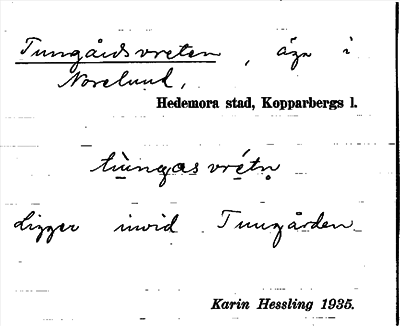 Tungårdsvreten, äga i
Norelund,
Hedemora stad, Kopparbergs l.
tùngasvrétn̥
Ligger invid Tungården
Karin Hessling 1935.